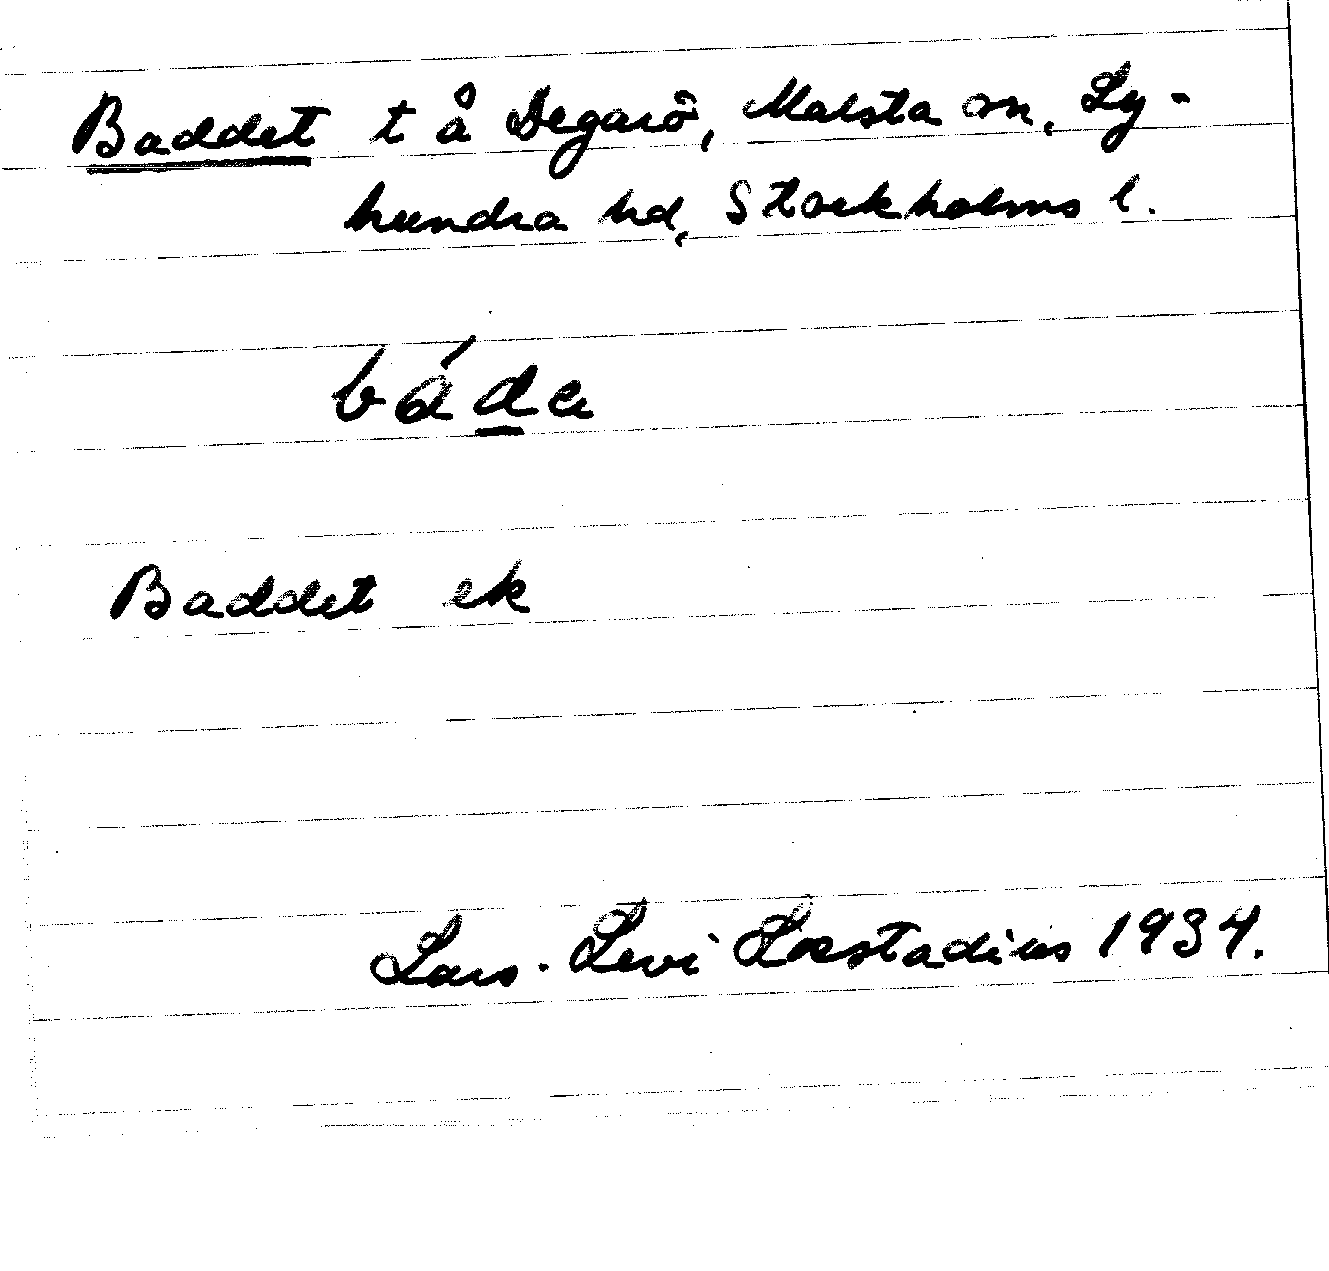 Baddet t å Degarö, Malsta sn, Ly-
hundra hd, Stockholms l.
báda
Baddet ek
Lars-Levi Læstadius 1934.